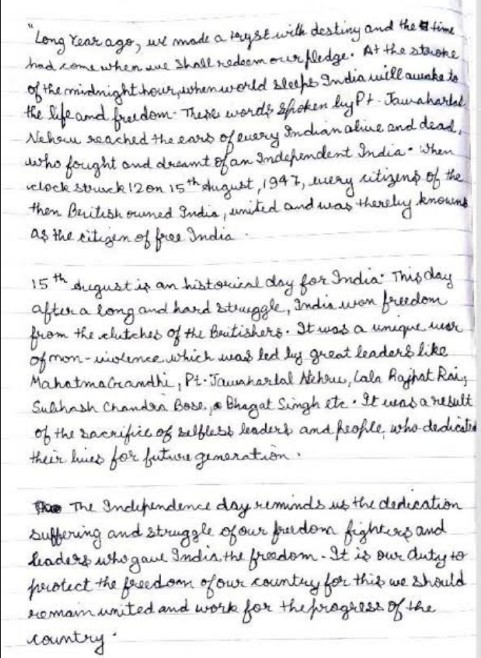 "Long Year ago, we made a tryst with destiny and the time
had come when we shall redeem our pledge. At the stroke
of the midnight hour, when world sleeps India will awake to
the life and freedom. These words spoken by Pt. Jawaharlal
Nehru reached the ears of every Indian alive and dead,
who fought and dreamt of an Independent India. When
clock struck 12 on 15th August, 1947, every citizens of the
then British owned India, united and was thereby known
as the citizen of free India.
15th August is an historical day for India. This day
after a long and hard struggle, India won freedom
from the clutches of the Britishers. It was a unique war
of non-violence which was led by great leaders like
Mahatma Gandhi, Pt. Jawaharlal Nehru, Lala Rajpat Rai,
Subhash Chandra Bose, Bhagat Singh etc. It was a result
of the sacrifice of selfless leaders and people, who dedicated
their lives for future generation.
The Independence day reminds us the dedication
suffering and struggle of our freedom fighters and
leaders who gave India the freedom. It is our duty to
protect the freedom of our country for this we should
remain united and work for the progress of the
country.